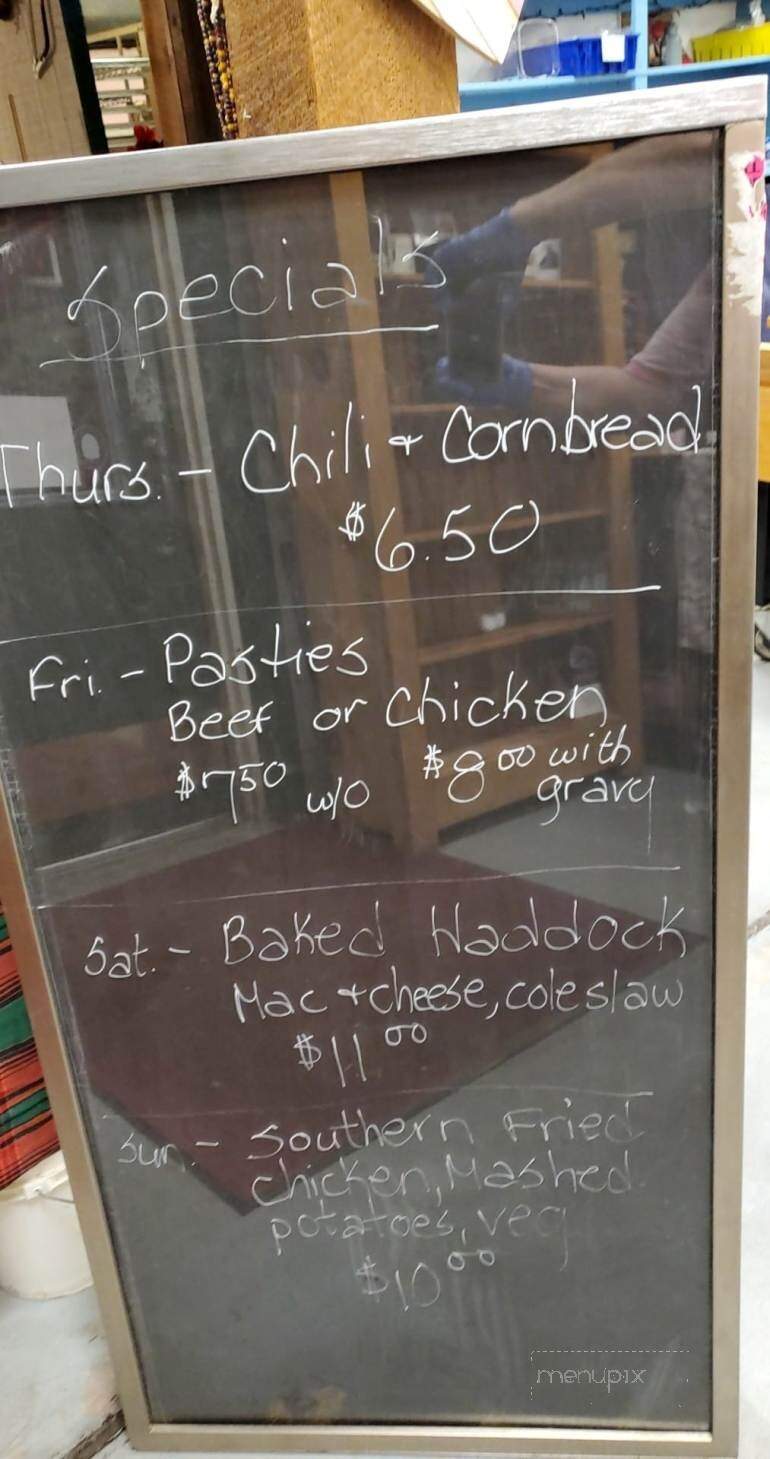 Specials
Thurs. - Chili + Cornbread
$6.50
Fri. - Pasties
Beef or Chicken
$7 50 w/o $8 00 with
gravy
Sat. - Baked Haddock
Mac + cheese, coleslaw
$11 00
Sun. - Southern Fried
chicken, Mashed
potatoes, veg
$10 00
menupix